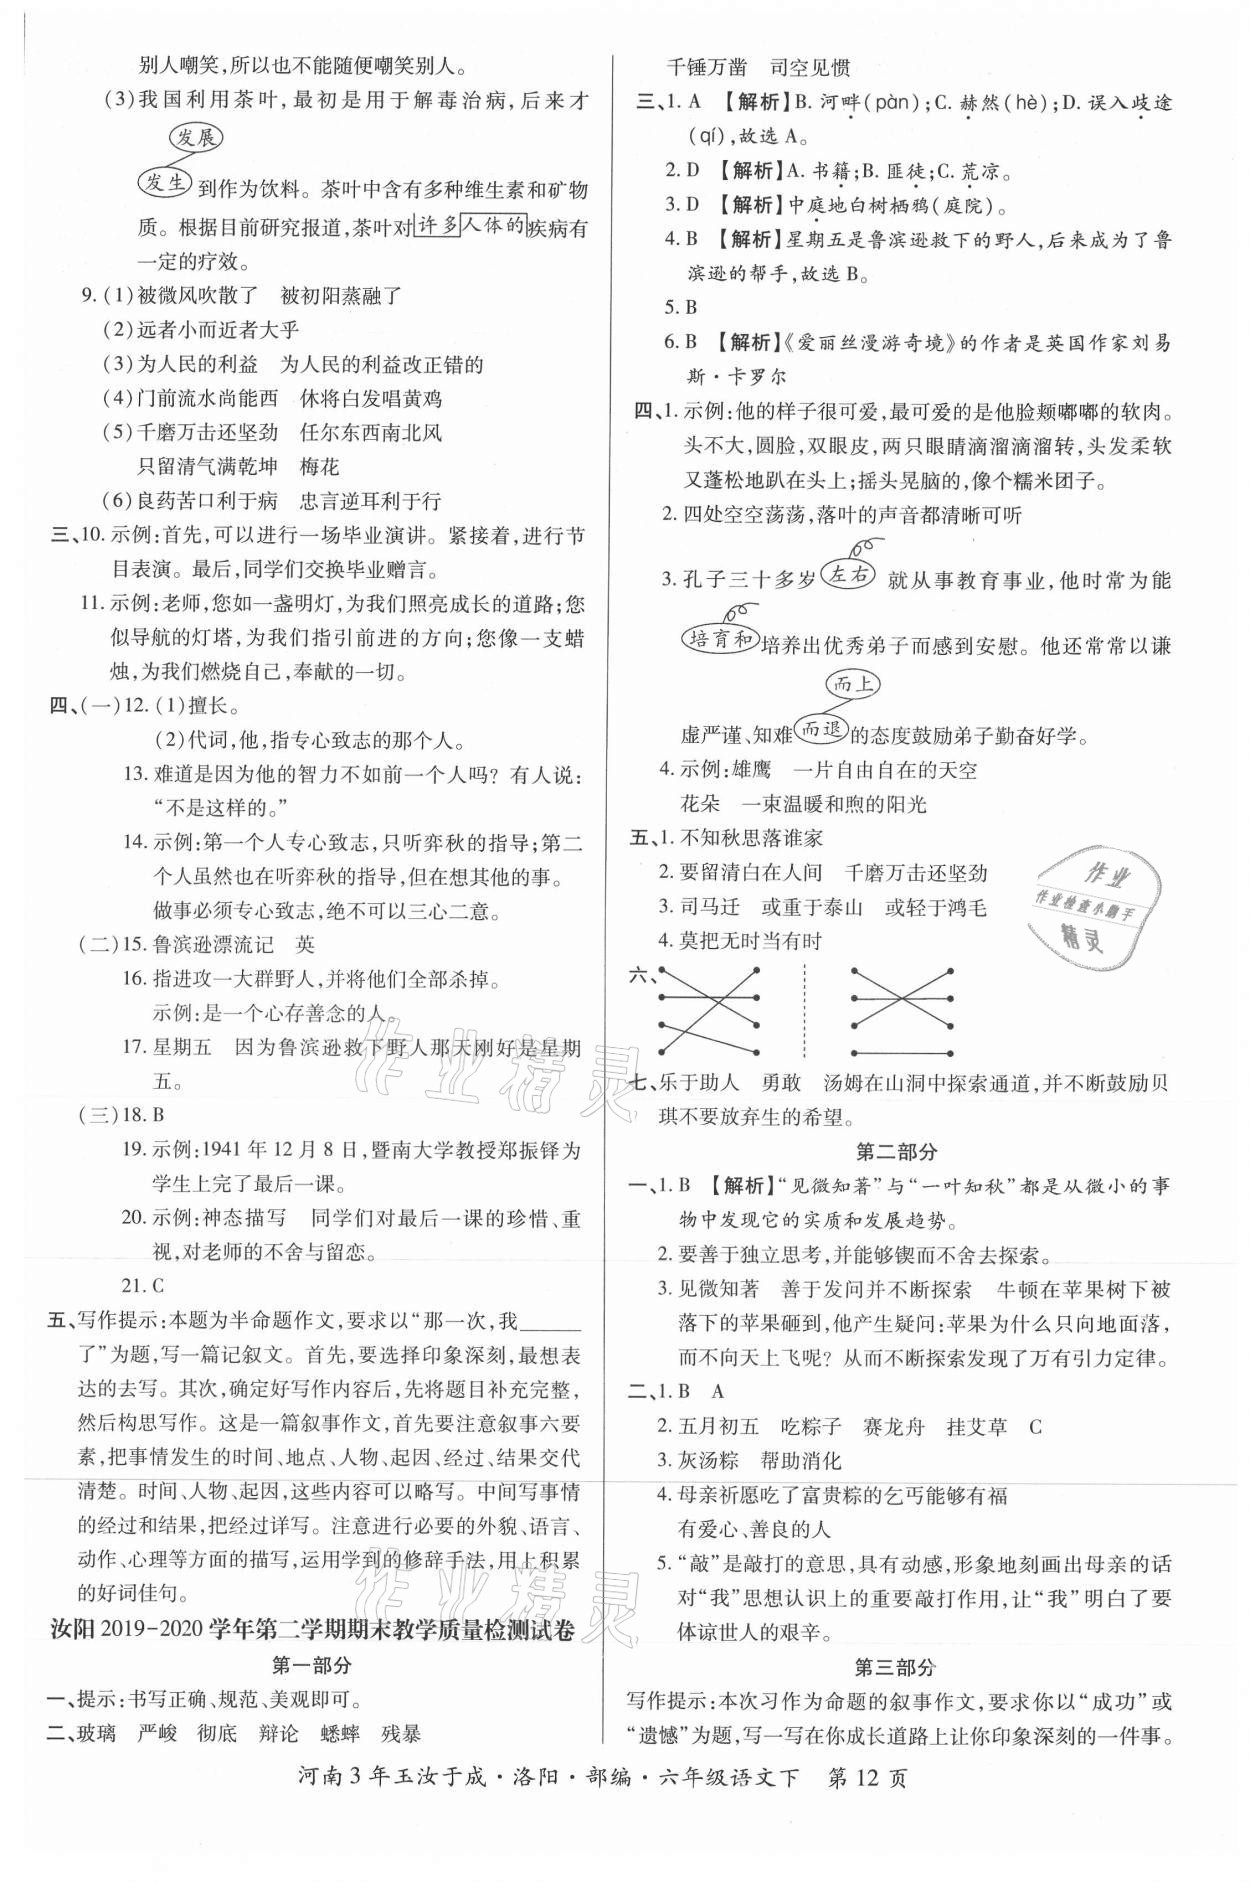 别人嘲笑,所以也不能随便嘲笑别人。
(3)我国利用茶叶,最初是用于解毒治病,后来才
发展
发生到作为饮料。茶叶中含有多种维生素和矿物
质。根据目前研究报道,茶叶对许多人体的疾病有
一定的疗效。
9.(1)被微风吹散了 被初阳蒸融了
(2)远者小而近者大乎
(3)为人民的利益 为人民的利益改正错的
(4)门前流水尚能西 休将白发唱黄鸡
(5)千磨万击还坚劲 任尔东西南北风
只留清气满乾坤 梅花
(6)良药苦口利于病 忠言逆耳利于行
三、10.示例:首先,可以进行一场毕业演讲。紧接着,进行节
目表演。最后,同学们交换毕业赠言。
11.示例:老师,您如一盏明灯,为我们照亮成长的道路;您
似导航的灯塔,为我们指引前进的方向;您像一支蜡
烛,为我们燃烧自己,奉献的一切。
四、(一)12.(1)擅长。
(2)代词,他,指专心致志的那个人。
13.难道是因为他的智力不如前一个人吗?有人说:
“不是这样的。”
14.示例:第一个人专心致志,只听弈秋的指导;第二
个人虽然也在听弈秋的指导,但在想其他的事。
做事必须专心致志,绝不可以三心二意。
(二)15.鲁滨逊漂流记 英
16.指进攻一大群野人,并将他们全部杀掉。
示例:是一个心存善念的人。
17.星期五 因为鲁滨逊救下野人那天刚好是星期
五。
(三)18.B
19.示例:1941年12月8日,暨南大学教授郑振铎为
学生上完了最后一课。
20.示例:神态描写 同学们对最后一课的珍惜、重
视,对老师的不舍与留恋。
21.C
五、写作提示:本题为半命题作文,要求以“那一次,我______
了”为题,写一篇记叙文。首先,要选择印象深刻,最想表
达的去写。其次,确定好写作内容后,先将题目补充完整,
然后构思写作。这是一篇叙事作文,首先要注意叙事六要
素,把事情发生的时间、地点、人物、起因、经过、结果交代
清楚。时间、人物、起因,这些内容可以略写。中间写事情
的经过和结果,把经过详写。注意进行必要的外貌、语言、
动作、心理等方面的描写,运用学到的修辞手法,用上积累
的好词佳句。
汝阳2019-2020学年第二学期期末教学质量检测试卷
第一部分
一、提示:书写正确、规范、美观即可。
二、玻璃 严峻 彻底 辩论 蟋蟀 残暴
千锤万凿 司空见惯
三、1.A 【解析】B.河畔(pàn);C.赫然(hè);D.误入歧途
(qí),故选A。
2.D 【解析】A.书籍;B.匪徒;C.荒凉。
3.D 【解析】中庭地白树栖鸦(庭院)。
4.B 【解析】星期五是鲁滨逊救下的野人,后来成为了鲁
滨逊的帮手,故选B。
5.B
6.B 【解析】《爱丽丝漫游奇境》的作者是英国作家刘易
斯·卡罗尔
四、1.示例:他的样子很可爱,最可爱的是他脸颊嘟嘟的软肉。
头不大,圆脸,双眼皮,两只眼睛滴溜滴溜转,头发柔软
又蓬松地趴在头上;摇头晃脑的,像个糯米团子。
2.四处空空荡荡,落叶的声音都清晰可听
3.孔子三十多岁左右就从事教育事业,他时常为能
培育和培养出优秀弟子而感到安慰。他还常常以谦
而上
虚严谨、知难而退的态度鼓励弟子勤奋好学。
4.示例:雄鹰 一片自由自在的天空
花朵 一束温暖和煦的阳光
五、1.不知秋思落谁家
2.要留清白在人间 千磨万击还坚劲
3.司马迁 或重于泰山 或轻于鸿毛
4.莫把无时当有时
六、
七、乐于助人 勇敢 汤姆在山洞中探索通道,并不断鼓励贝
琪不要放弃生的希望。
第二部分
一、1.B 【解析】“见微知著”与“一叶知秋”都是从微小的事
物中发现它的实质和发展趋势。
2.要善于独立思考,并能够锲而不舍去探索。
3.见微知著 善于发问并不断探索 牛顿在苹果树下被
落下的苹果砸到,他产生疑问:苹果为什么只向地面落,
而不向天上飞呢?从而不断探索发现了万有引力定律。
二、1.B A
2.五月初五 吃粽子 赛龙舟 挂艾草 C
3.灰汤粽 帮助消化
4.母亲祈愿吃了富贵粽的乞丐能够有福
有爱心、善良的人
5.“敲”是敲打的意思,具有动感,形象地刻画出母亲的话
对“我”思想认识上的重要敲打作用,让“我”明白了要
体谅世人的艰辛。
第三部分
写作提示:本次习作为命题的叙事作文,要求你以“成功”或
“遗憾”为题,写一写在你成长道路上让你印象深刻的一件事。
河南3年玉汝于成·洛阳·部编·六年级语文下 第12页
作业
作业检查小帮手
精灵
作业精灵
作业精灵